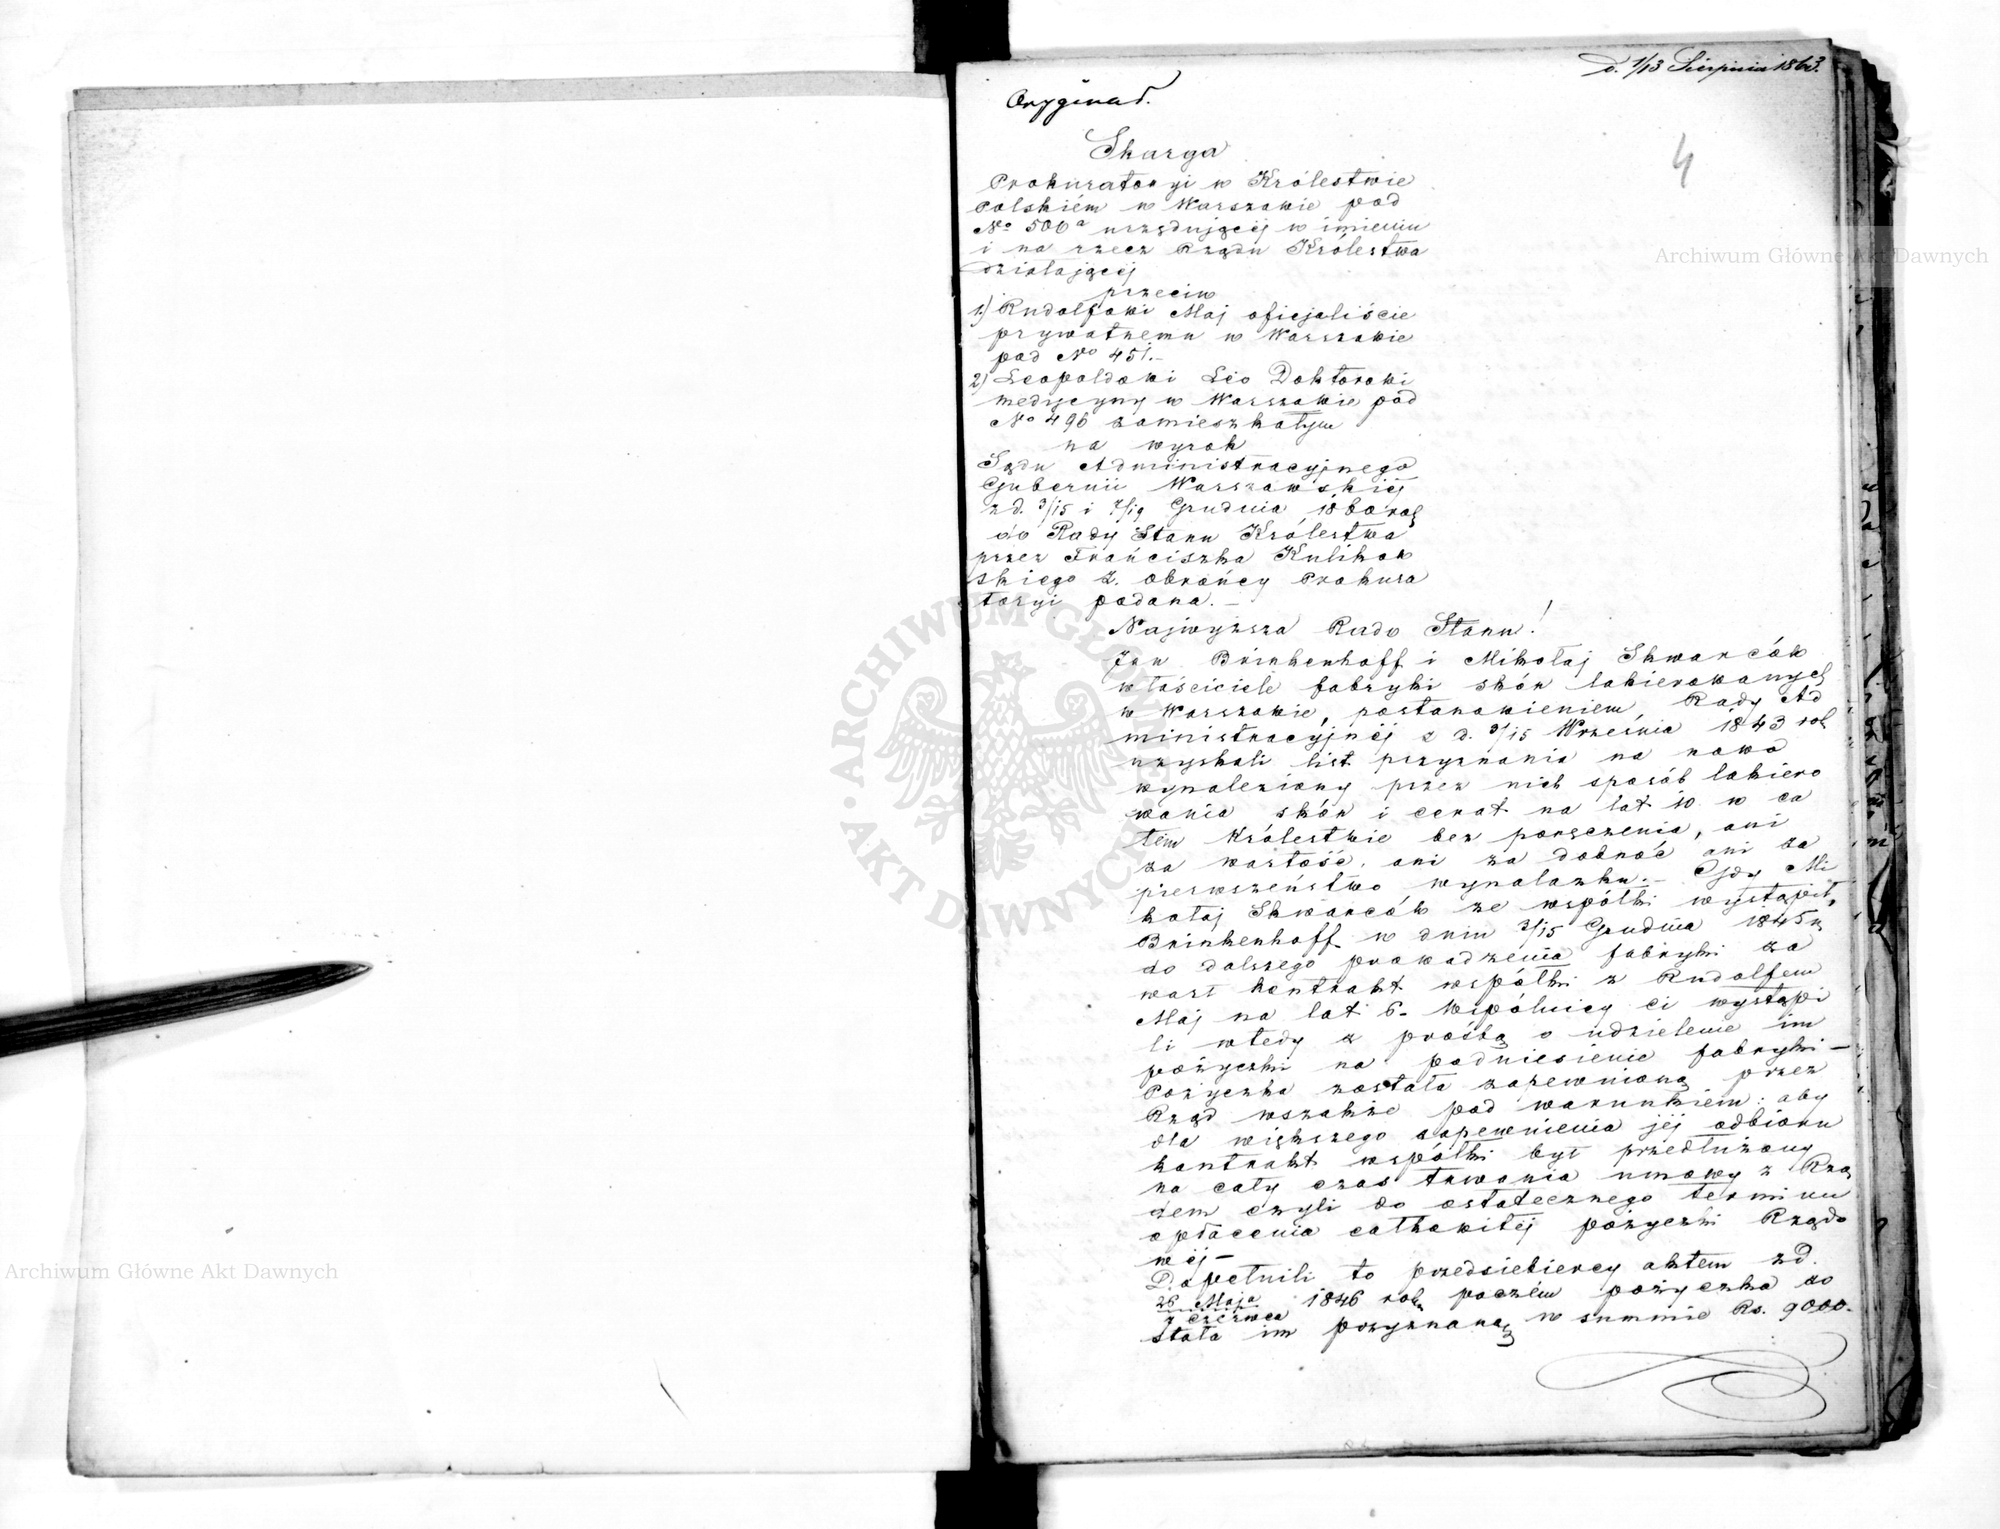 d. 1/13 Sierpnia 1863.
Oryginał.
4
Skarga
Prokuratoryi w Królestwie
Polskiém w Warszawie pod
No 500a urzędującéj w imieniu
i na rzecz Rządu Królestwa
działającéj
przeciw
1) Rudolfowi Maj oficjaliście
prywatnemu w Warszawie
pod No 451.-
2) Leopoldowi Leo Doktorowi
medycyny w Warszawie pod
No 496 zamieszkałym
na wyrok
Sądu Administracyjnego
Gubernii Warszawskiéj
z d. 3/15 i 7/19 Grudnia 1860 rok
do Rady Stanu Królestwa
przez Franciszka Kulikow
skiego z. obrońcy Prokura
toryi podana.-
Najwyższa Rado Stanu!
Jan Brinkenhoff i Mikołaj Skwarców
właściciele fabryki skór lakierowanych
w Warszawie, postanowieniem Rady Ad
ministracyjnéj z d. 3/15 Września 1843 rok
uzyskali list przyznania na nowo
wynaleziony przez nich sposób lakiero
wania skór i cerat na lat 10 w ca
łém Królestwie bez poręczenia, ani
za wartość, ani za dobroć ani za
pierwszeństwo wynalazku.- Gdy Mi
kołaj Skwarców ze wspólki wystąpił,
Brinkenhoff w dniu 3/15 Grudnia 1845 r.
do dalszego prowadzenia fabryki za
warł kontrakt wspólki z Rudolfem
Maj na lat 6- Wspólnicy ci wystąpi
li wtedy z prośbą o udzielenie im
pożyczki na podniesienie fabryki-
Pożyczka została zapewnioną przez
Rząd wszakże pod warunkiem: aby
dla większego zapewnienia jéj odbioru
kontrakt wspólki był przedłużony
na cały czas trwania umowy z Rzą
dem czyli do ostatecznego terminu
opłacenia całkowitéj pożyczki Rządo
wéj-
Dopełnili to przedsiebiercy aktem z d.
26 Maja
7 Czerwca 1846 rok poczém pożyczka zo
stała im przyznaną w summie Rs. 9000.-
Archiwum Główne Akt Dawnych
Archiwum Główne Akt Dawnych
ARCHIWUM GŁÓWNE AKT DAWNYCH